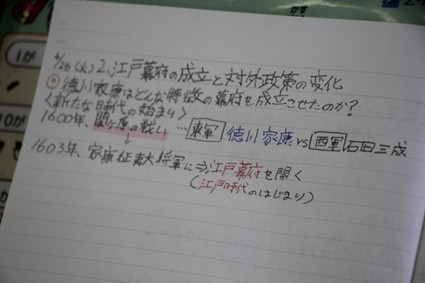 6/28(火) 2、江戸幕府の成立と対外政策の変化
◎徳川家康はどんな特徴の幕府を成立させたのか?
〈新たな時代の始まり〉
1600年、関ヶ原の戦い…東軍 徳川家康 VS 西軍 石田三成
↓
1603年、家康征夷大将軍に⇒江戸幕府を開く
(江戸時代のはじまり)